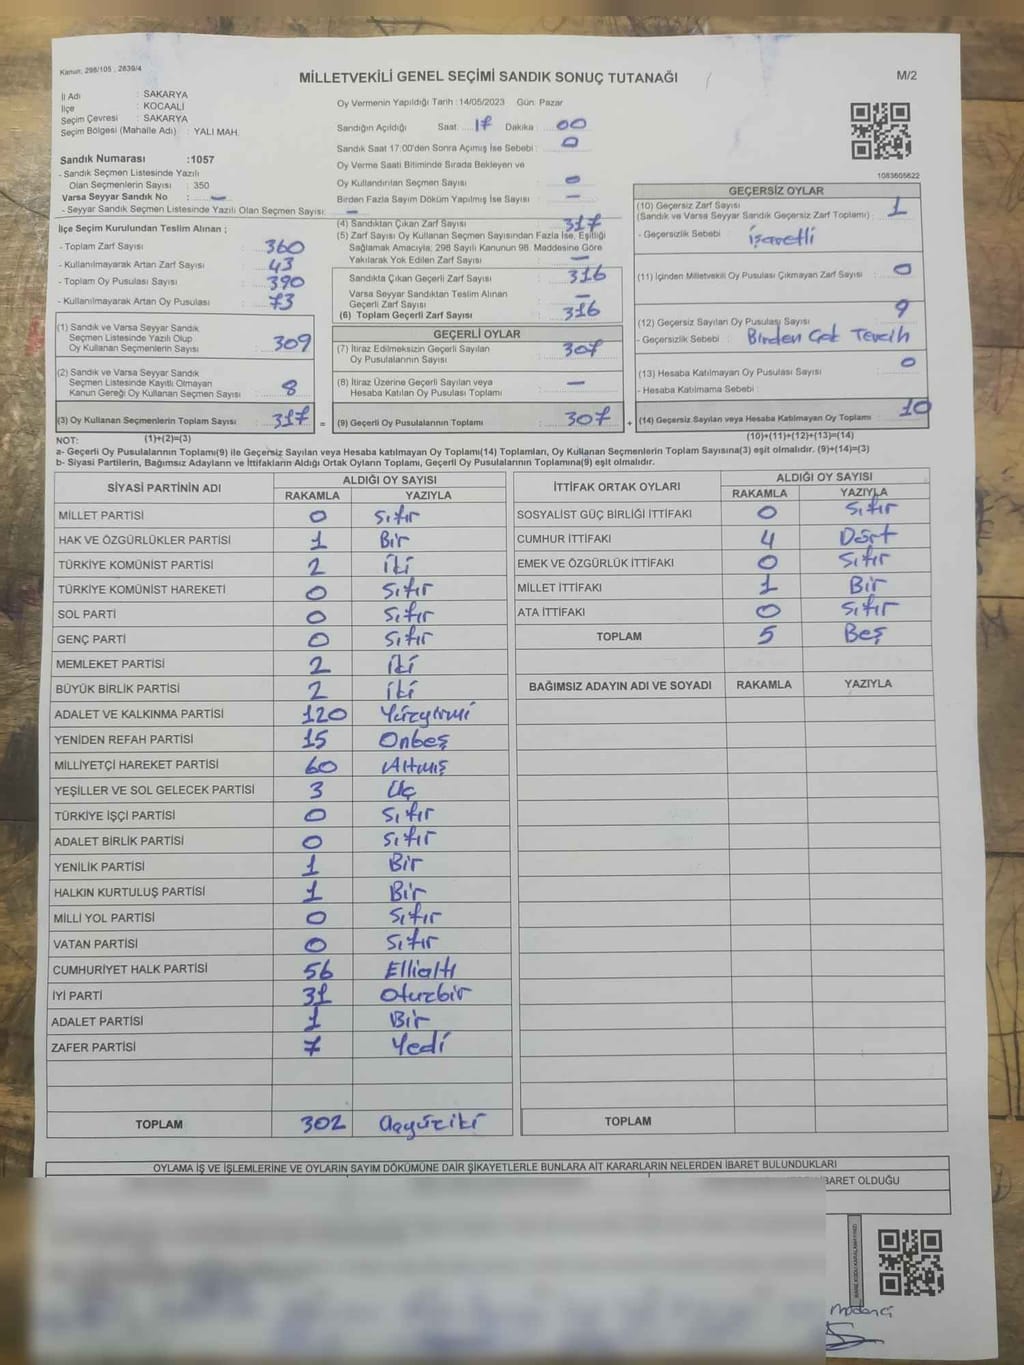 Kanun: 298/105 , 2839/4
MİLLETVEKİLİ GENEL SEÇİMİ SANDIK SONUÇ TUTANAĞI
M/2
İl Adı : SAKARYA
İlçe : KOCAALİ
Seçim Çevresi : SAKARYA
Seçim Bölgesi (Mahalle Adı) : YALI MAH.
Sandık Numarası :1057
- Sandık Seçmen Listesinde Yazılı
Olan Seçmenlerin Sayısı : 350
Varsa Seyyar Sandık No : —
- Seyyar Sandık Seçmen Listesinde Yazılı Olan Seçmen Sayısı: —
İlçe Seçim Kurulundan Teslim Alınan ;
- Toplam Zarf Sayısı : 360
- Kullanılmayarak Artan Zarf Sayısı : 43
- Toplam Oy Pusulası Sayısı : 390
- Kullanılmayarak Artan Oy Pusulası : 73
(1) Sandık ve Varsa Seyyar Sandık
Seçmen Listesinde Yazılı Olup
Oy Kullanan Seçmenlerin Sayısı : 309
(2) Sandık ve Varsa Seyyar Sandık
Seçmen Listesinde Kayıtlı Olmayan
Kanun Gereği Oy Kullanan Seçmen Sayısı : 8
(3) Oy Kullanan Seçmenlerin Toplam Sayısı : 317 =
Oy Vermenin Yapıldığı Tarih : 14/05/2023 Gün: Pazar
Sandığın Açıldığı Saat : 17 Dakika : 00
Sandık Saat 17:00'den Sonra Açımış İse Sebebi : 0
Oy Verme Saati Bitiminde Sırada Bekleyen ve
Oy Kullandırılan Seçmen Sayısı : 0
Birden Fazla Sayım Döküm Yapılmış İse Sayısı : —
(4) Sandıktan Çıkan Zarf Sayısı : 317
(5) Zarf Sayısı Oy Kullanan Seçmen Sayısından Fazla İse, Eşitliği
Sağlamak Amacıyla; 298 Sayılı Kanunun 98. Maddesine Göre
Yakılarak Yok Edilen Zarf Sayısı : —
Sandıkta Çıkan Geçerli Zarf Sayısı : 316
Varsa Seyyar Sandıktan Teslim Alınan
Geçerli Zarf Sayısı : —
(6) Toplam Geçerli Zarf Sayısı : 316
GEÇERLİ OYLAR
(7) İtiraz Edilmeksizin Geçerli Sayılan
Oy Pusulalarının Sayısı : 307
(8) İtiraz Üzerine Geçerli Sayılan veya
Hesaba Katılan Oy Pusulası Toplamı : —
(9) Geçerli Oy Pusulalarının Toplamı : 307 +
1083605622
GEÇERSİZ OYLAR
(10) Geçersiz Zarf Sayısı
(Sandık ve Varsa Seyyar Sandık Geçersiz Zarf Toplamı) : 1
- Geçersizlik Sebebi : İşaretli
(11) İçinden Milletvekili Oy Pusulası Çıkmayan Zarf Sayısı : 0
(12) Geçersiz Sayılan Oy Pusulası Sayısı : 9
- Geçersizlik Sebebi : Birden Çok Tercih
(13) Hesaba Katılmayan Oy Pusulası Sayısı : 0
- Hesaba Katılmama Sebebi :
(14) Geçersiz Sayılan veya Hesaba Katılmayan Oy Toplamı : 10
NOT: (1)+(2)=(3) (10)+(11)+(12)+(13)=(14)
a- Geçerli Oy Pusulalarının Toplamı(9) ile Geçersiz Sayılan veya Hesaba katılmayan Oy Toplamı(14) Toplamları, Oy Kullanan Seçmenlerin Toplam Sayısına(3) eşit olmalıdır. (9)+(14)=(3)
b- Siyasi Partilerin, Bağımsız Adayların ve İttifakların Aldığı Ortak Oyların Toplamı, Geçerli Oy Pusulalarının Toplamına(9) eşit olmalıdır.
SİYASİ PARTİNİN ADI ALDIĞI OY SAYISI
RAKAMLA YAZIYLA
MİLLET PARTİSİ 0 Sıfır
HAK VE ÖZGÜRLÜKLER PARTİSİ 1 Bir
TÜRKİYE KOMÜNİST PARTİSİ 2 İki
TÜRKİYE KOMÜNİST HAREKETİ 0 Sıfır
SOL PARTİ 0 Sıfır
GENÇ PARTİ 0 Sıfır
MEMLEKET PARTİSİ 2 İki
BÜYÜK BİRLİK PARTİSİ 2 İki
ADALET VE KALKINMA PARTİSİ 120 Yüzyirmi
YENİDEN REFAH PARTİSİ 15 Onbeş
MİLLİYETÇİ HAREKET PARTİSİ 60 Altmış
YEŞİLLER VE SOL GELECEK PARTİSİ 3 Üç
TÜRKİYE İŞÇİ PARTİSİ 0 Sıfır
ADALET BİRLİK PARTİSİ 0 Sıfır
YENİLİK PARTİSİ 1 Bir
HALKIN KURTULUŞ PARTİSİ 1 Bir
MİLLİ YOL PARTİSİ 0 Sıfır
VATAN PARTİSİ 0 Sıfır
CUMHURİYET HALK PARTİSİ 56 Ellialtı
İYİ PARTİ 31 Otuzbir
ADALET PARTİSİ 1 Bir
ZAFER PARTİSİ 7 Yedi
TOPLAM 302 Üçyüziki
İTTİFAK ORTAK OYLARI ALDIĞI OY SAYISI
RAKAMLA YAZIYLA
SOSYALİST GÜÇ BİRLİĞİ İTTİFAKI 0 Sıfır
CUMHUR İTTİFAKI 4 Dört
EMEK VE ÖZGÜRLÜK İTTİFAKI 0 Sıfır
MİLLET İTTİFAKI 1 Bir
ATA İTTİFAKI 0 Sıfır
TOPLAM 5 Beş
BAĞIMSIZ ADAYIN ADI VE SOYADI RAKAMLA YAZIYLA
TOPLAM
OYLAMA İŞ VE İŞLEMLERİNE VE OYLARIN SAYIM DÖKÜMÜNE DAİR ŞİKAYETLERLE BUNLARA AİT KARARLARIN NELERDEN İBARET BULUNDUKLARI
İBARET OLDUĞU